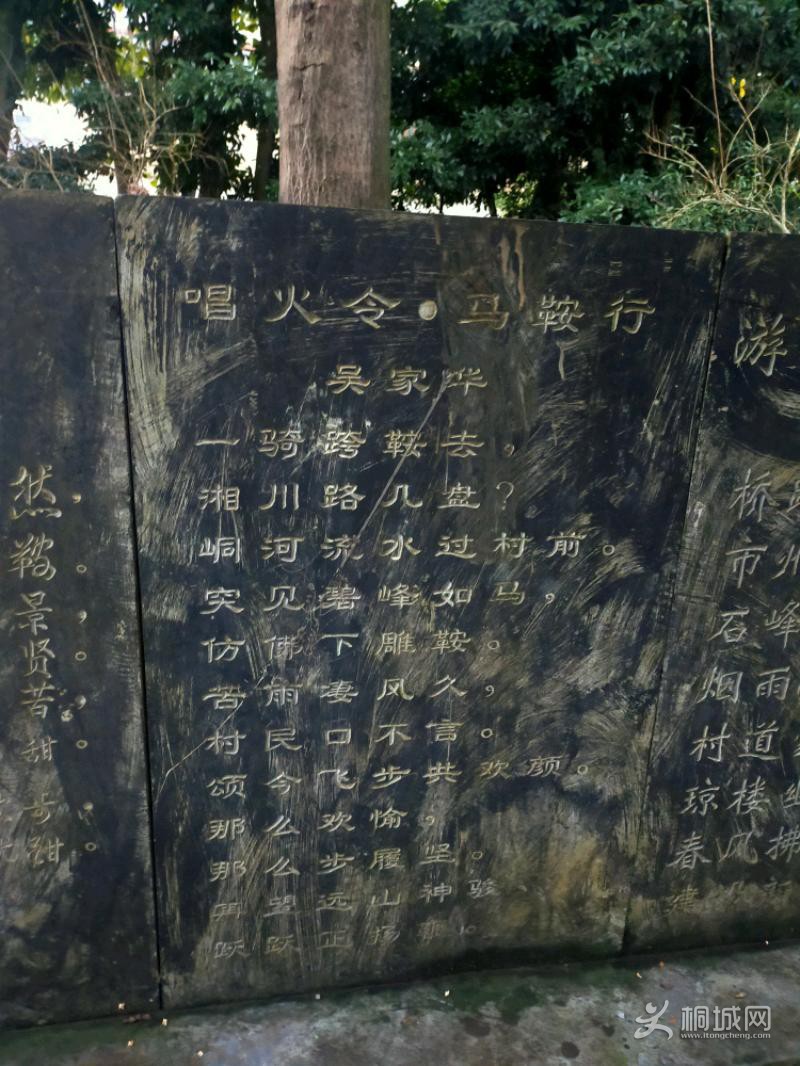 唱火令·马鞍行
吴家烨
一骑跨鞍去,
湘川路几盘?
峒河流水过村前。
突见碧峰如马,
仿佛下雕鞍。
苦雨凄风久,
村民口不信。
颂今飞步共欢颜。
那么欢愉,
那么步履坚。
盟远山神骏。
跃跃正扬鞭。
然,
鞍。
景,
贤。
苦,
甜。
游
桥
市州
石峰
烟雨
村道
琼楼
春风拂
建
桐城网
www.itongcheng.com